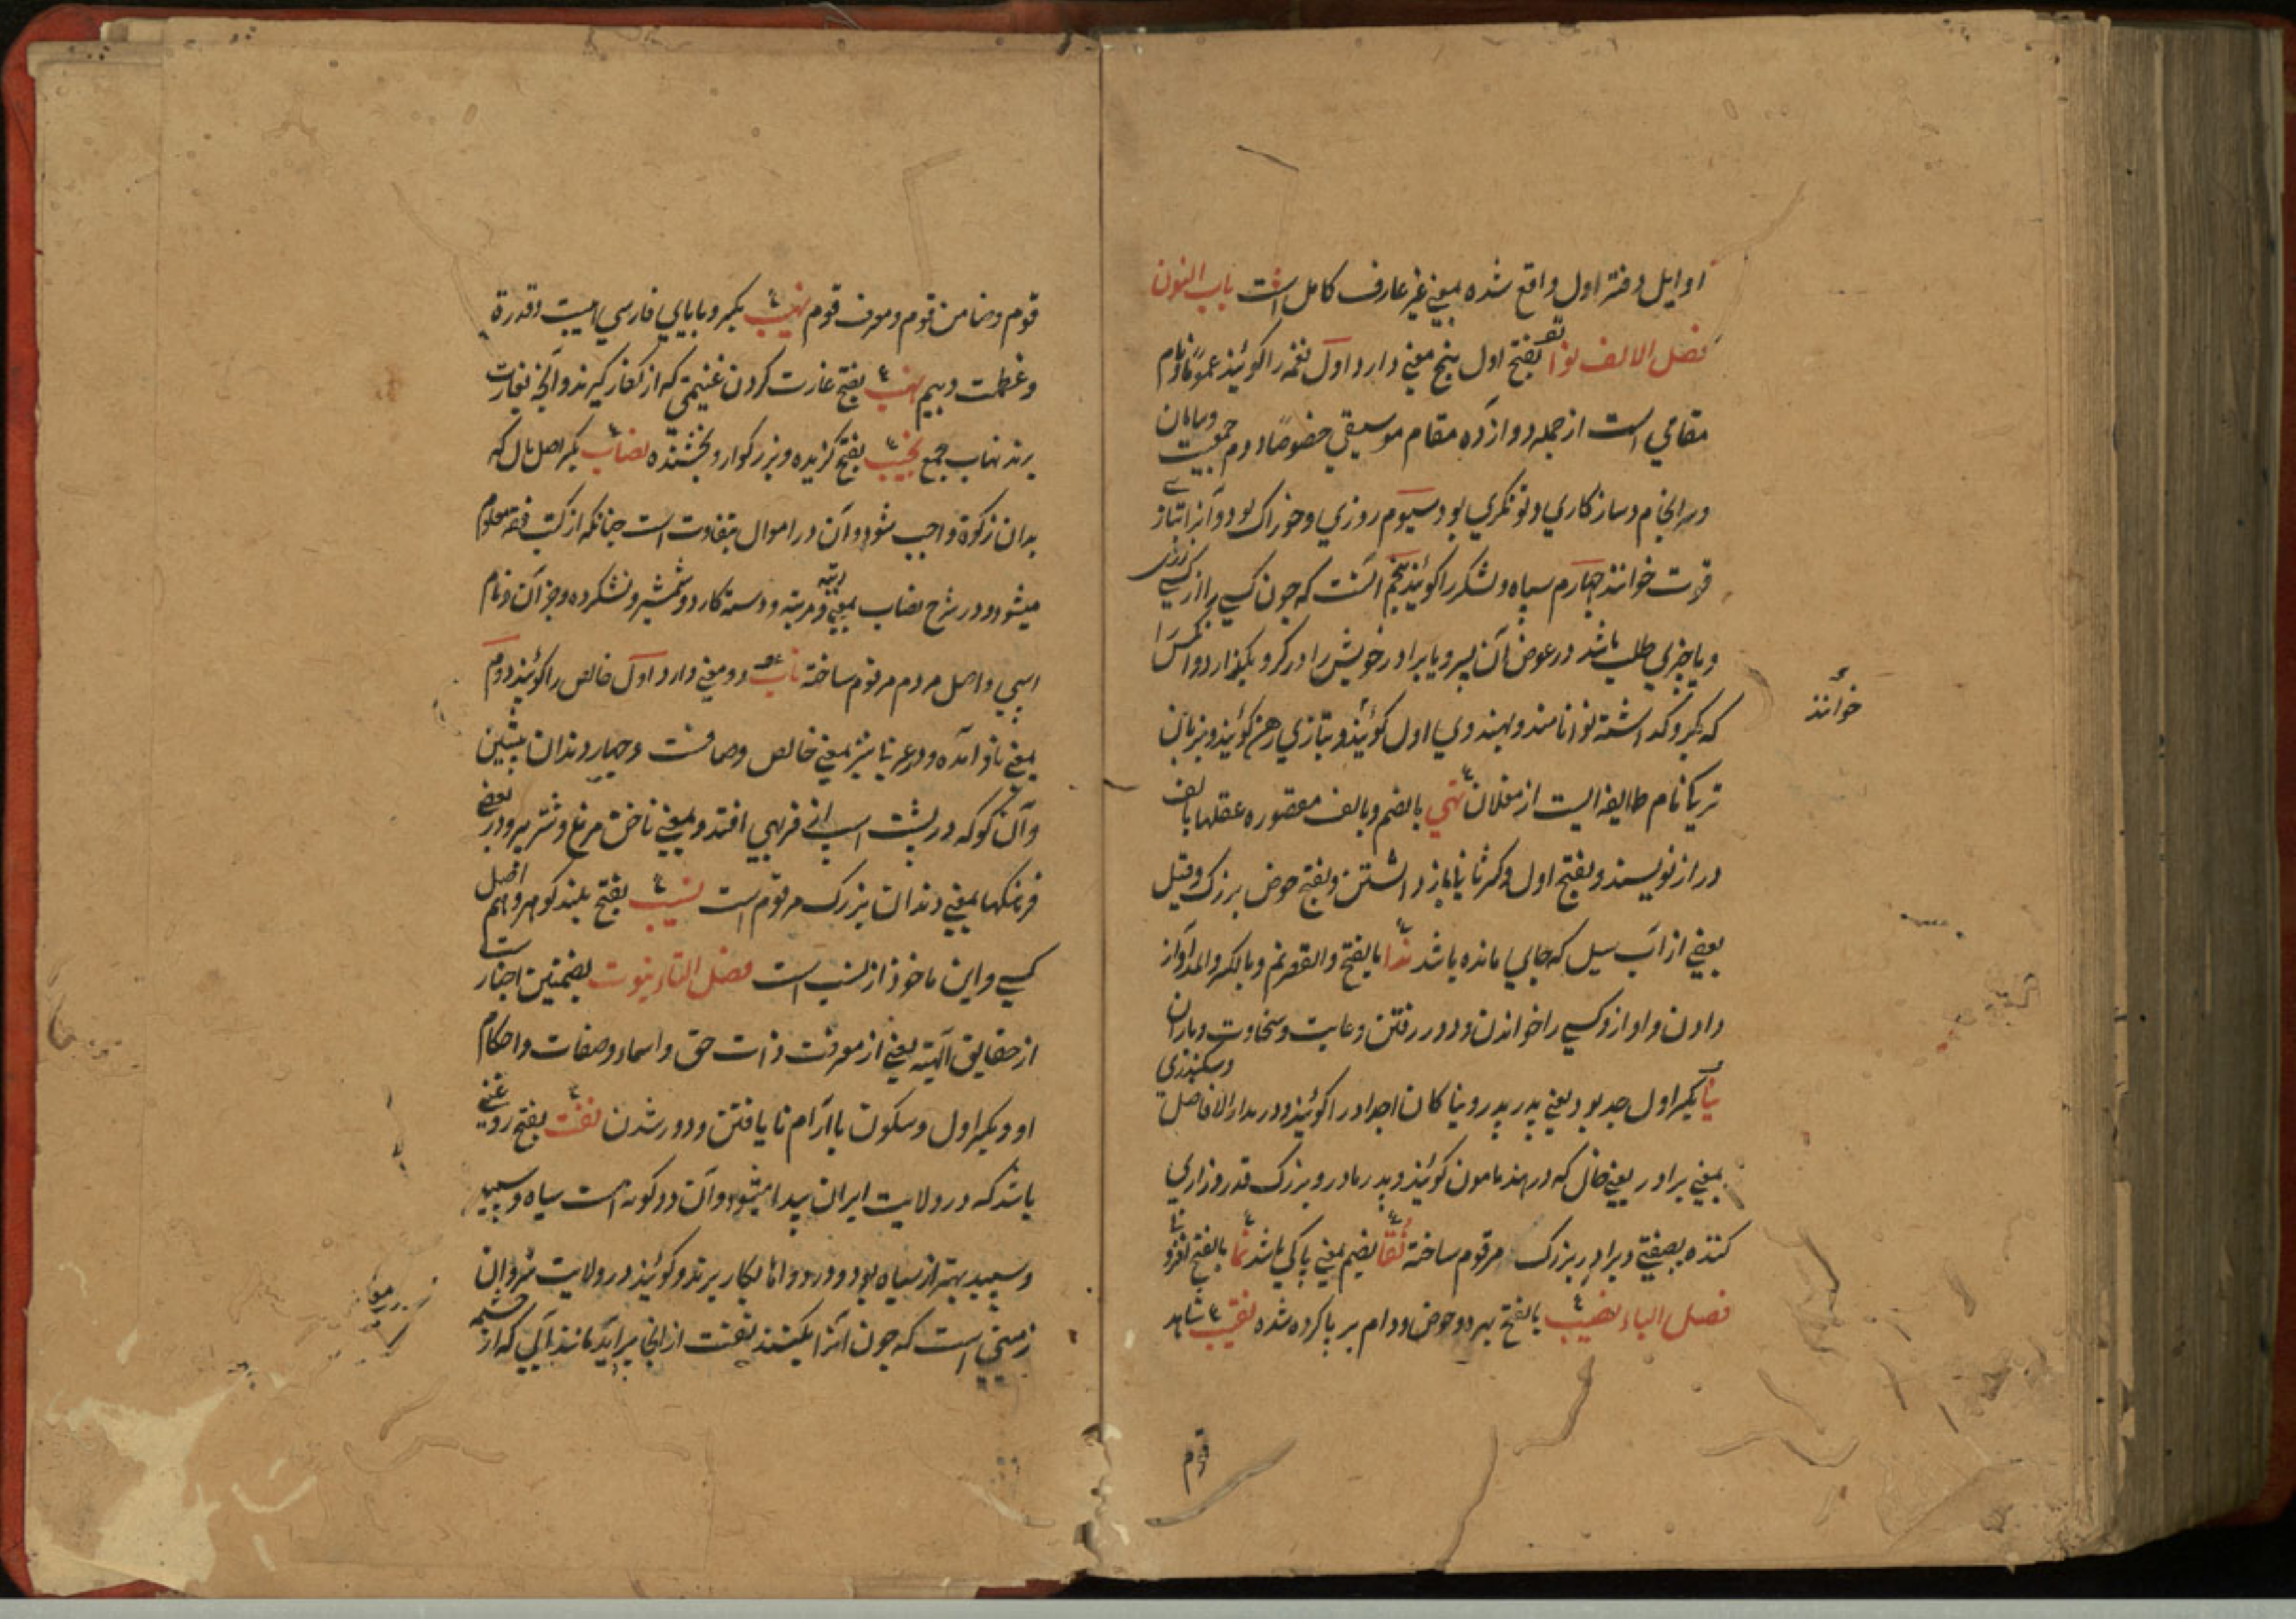 اوایل دفتر اول واقع شده بمعنی غیر عارف کامل است باب النون
فصل الالف نوا بفتح اول پنج معنی دارد اول نغمه را کویند عموما و نام
مقامی است از جمله دوازده مقام موسیقی خصوصا دوم جمعیت وسامان
وسرانجام وساز کاری وتونکری بود سیوم روزی وخوراک بود وآنرا بتازی
قوت خوانند چهارم سپاه ولشکر را کویند پنجم آنست که چون کسی را از کسی زری
ویا چیزی طلب باشد در عوض آن پسر ویا برادر خویش را در کرو بکذارد وآنکس را
که بکرو کذاشته نوا نامند وبهندوی اول کویند وبتازی رهن کویند وبزبان
خوانند
ترکی نام طایفه ایست از مغلان نهی بالضم وبالف مقصوره عقلها بالف
دراز نویسند وبفتح اول وکسر ثانی باز داشتن وبفتح حوض بزرک وقیل
بعضی از آب سیل که جای مانده باشد ندا بالفتح والقصر نم وبالکسر والمد آواز
دادن واواز وکسی را خواندن ودور رفتن وغایت وسخاوت وباران
نیا بکسر اول جد بود یعنی پدر پدر ونیاکان اجداد را کویند ودر مدار الافاضل وسکندری
بمعنی برادر یعنی خال که در هند مامون کویند وپدر مادر وبزرک قدر وزاری
کننده بصفتی وبرادر بزرک مرقوم ساخته نقا بضم بمعنی پاکی باشد نما بالفتح افزونا
فصل الباء نصیب بالفتح بهره وحوض ودام بر پا کرده شده نقیب شاهد
قوم
قوم وضامن قوم ومعرف قوم نهیب بکسر وبا بای فارسی هیبت وقدرة
وعظمت وبیم نهب بفتح غارت کردن غنیمتی که از کفار کیرند وآنچه بغارت
برند نهاب جمع نجیب بفتح کزیده وبزرکوار وبخشنده نصاب بکسر اصل مال که
بدان زکوة واجب شود وآن در اموال متفاوت است چنانکه از کتب فقه معلوم
میشود ودر شرح نصاب بمعنی رتبه ومرتبه ودسته کارد وشمشیر ونشکرده وجز آن ونام
اسپی واصل مردم مرقوم ساخته ناب دو معنی دارد اول خالص را کویند دوم
بمعنی ناو آمده ودر عربی نیز بمعنی خالص وصافست وچهار دندان پیشین
وآن کو که در پشت اسپ از فربهی افتد وبمعنی ناخن مرغ وشتر پیر ودر بعضی
فرهنکها بمعنی دندان بزرک مرقوم است نسیب بفتح بلند کوهر وهم اصل
کسی واین ماخوذ از نسب است فصل التاء نبوت بضمتین اخبار
از حقایق الهیه یعنی از معرفت ذات حق واسماء وصفات واحکام
او وبکسر اول وسکون با آرام نا یافتن ودور شدن نفت بفتح روغنی
باشد که در ولایت ایران پیدا میشود وآن دو کونه است سیاه وسپید
وسپید بهتر از سیاه بود ودر دواها بکار برند وکویند در ولایت شروان
زمینی است که چون آنرا بکنند نفت از آنجا برآید مانند آبی که از چشمه